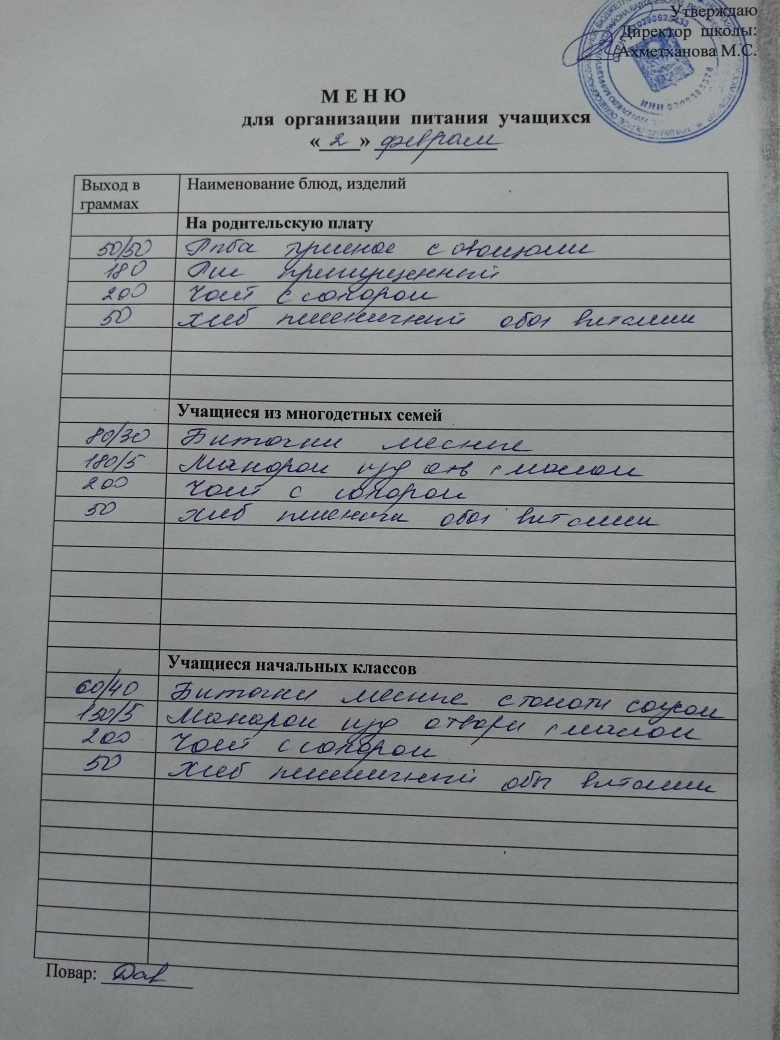 Утверждаю
Директор школы:
Ахметханова М.С.
М Е Н Ю
для организации питания учащихся
« 2 » февраля
Выход в граммах Наименование блюд, изделий
На родительскую плату
50/50 Рыба тушеная с овощами
180 Рис припущенный
200 Чай с сахаром
50 Хлеб пшеничный обог витамин
Учащиеся из многодетных семей
80/30 Биточки мясные
180/5 Макарон изд отв с маслом
200 Чай с сахаром
50 Хлеб пшенич обог витамин
Учащиеся начальных классов
60/40 Биточки мясные с томатн соусом
150/5 Макарон изд отварн с маслом
200 Чай с сахаром
50 Хлеб пшеничный обог витамин
Повар: